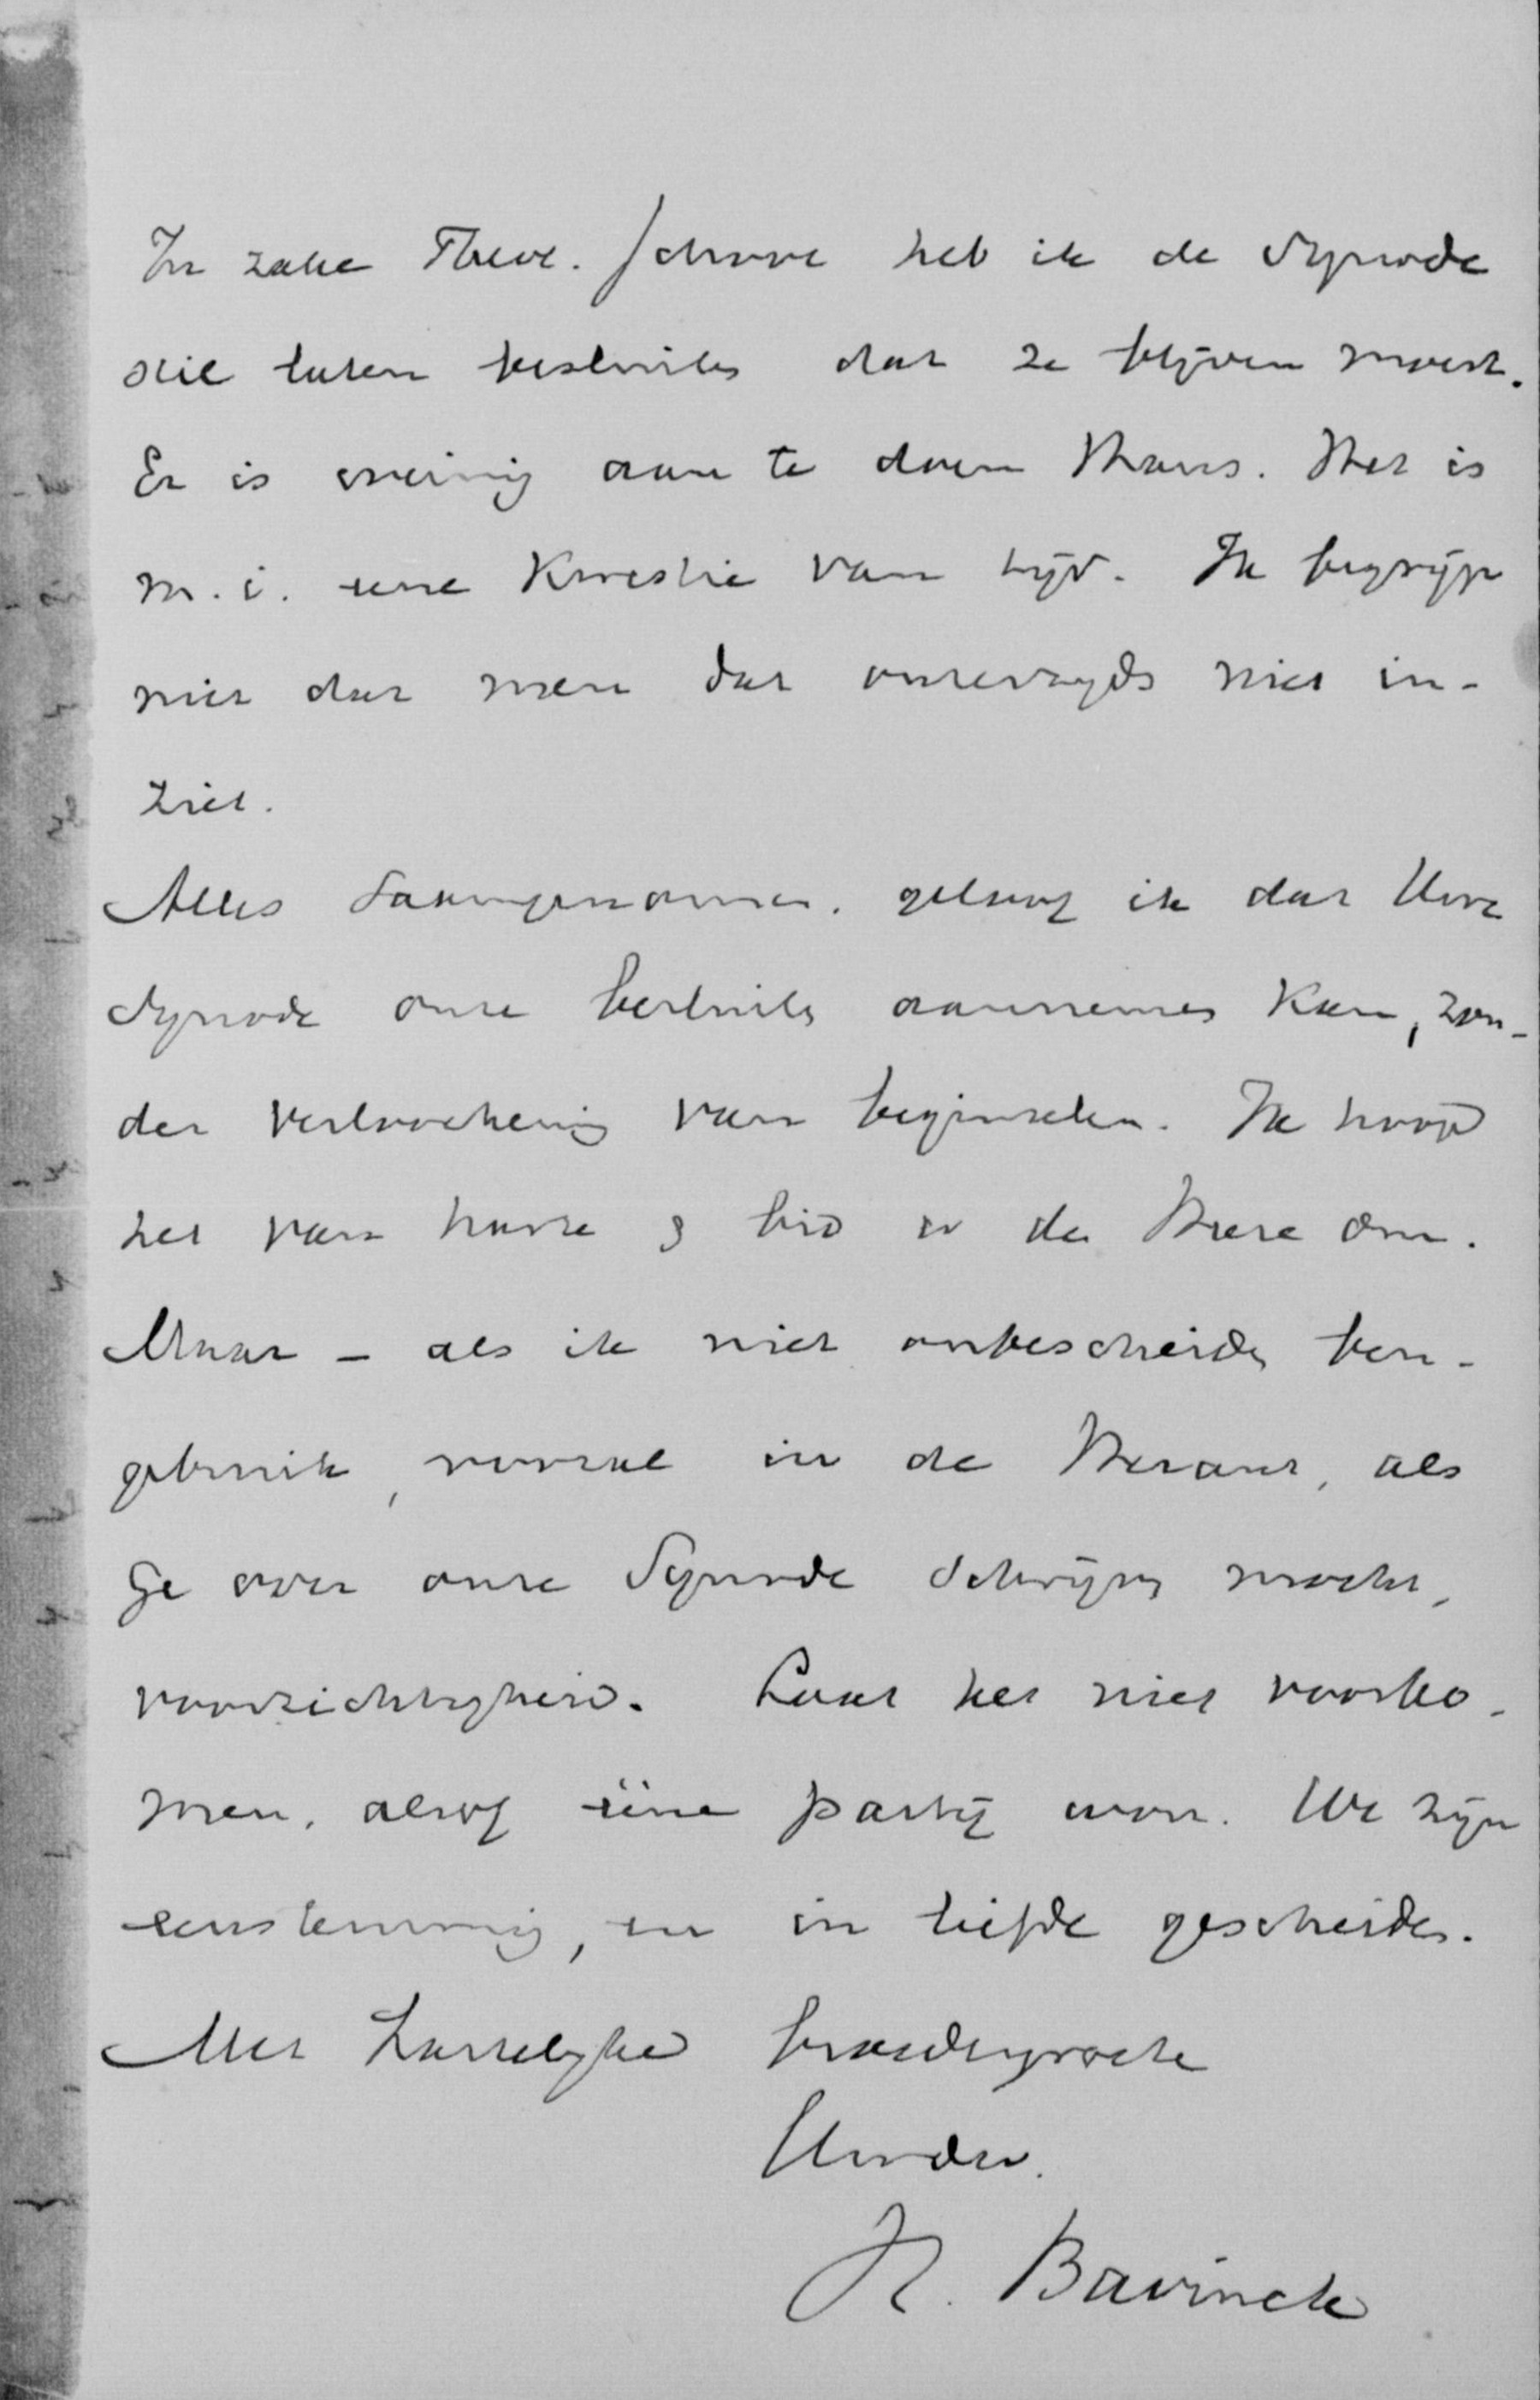 In zake Theol. School heb ik de Synode
stil laten besluiten dat ze blijven moest.
Er is weinig aan te doen thans. Het is
m.i. eene kwestie van tijd. Ik begrijp
niet dat men dat onzerzijds niet in-
ziet.
Alles saamgenomen, geloof ik dat Uwe
Synode onze besluiten aannemen kan, zon-
der verloochening van beginselen. Ik hoop
het van harte & bid er den Heere om.
Maar - als ik niet onbescheiden ben -
gebruik, vooral in de Heraut, als
Ge over onze Synode schrijven mocht,
voorzichtigheid. Laat het niet voorko-
men, alsof ééne partij won. We zijn
eenstemmig, en in liefde gescheiden.
Met hartelijke broedergroete
Uwdw.
H. Bavinck